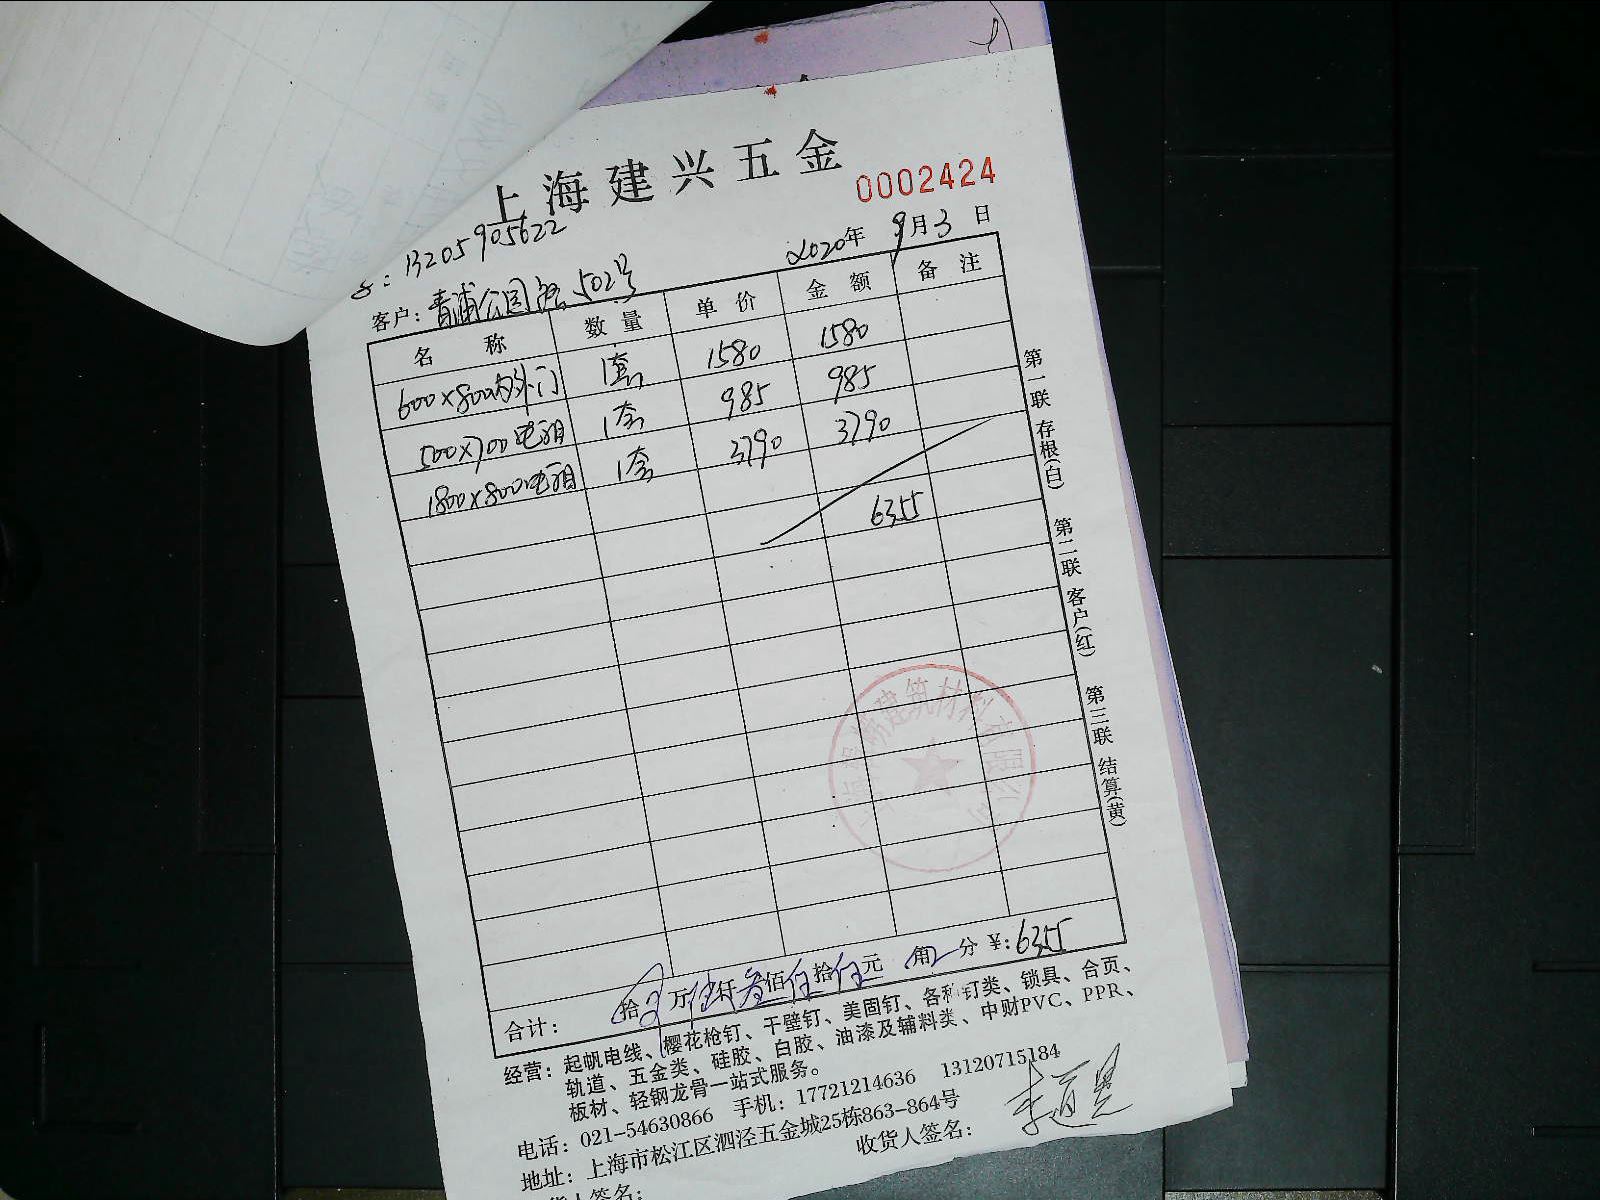 上海建兴五金
0002424
13205905622
2020年 9月 3 日
客户：青浦公园路502号
名 称 数 量 单 价 金 额 备 注
600×800内外门 1套 1580 1580
500×700电箱 1套 985 985
1800×800电箱 1套 3790 3790
6355
合计： 拾 万伍仟叁佰伍拾伍元 角 分 ¥:6355
经营：起帆电线、樱花枪钉、干壁钉、美固钉、各种钉类、锁具、合页、
轨道、五金类、硅胶、白胶、油漆及辅料类、中财PVC、PPR、
板材、轻钢龙骨一站式服务。
电话：021-54630866 手机：17721214636 13120715184
地址：上海市松江区泗泾五金城25栋863-864号
收货人签名：
货人签名：
第一联 存根(白) 第二联 客户(红) 第三联 结算(黄)
建筑材料有限公司